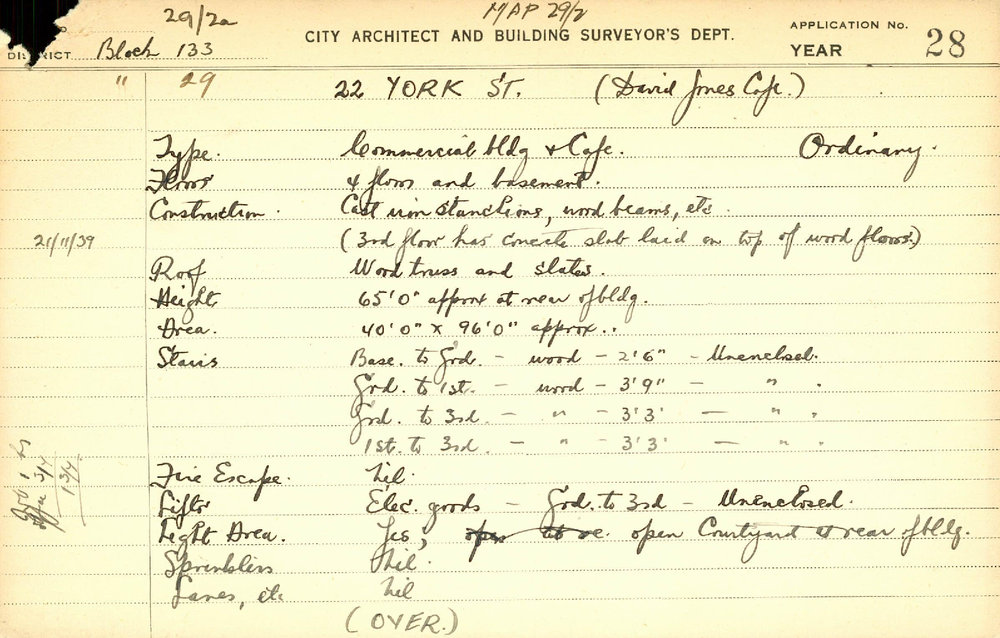 29/2a MAP 29/2
CITY ARCHITECT AND BUILDING SURVEYOR'S DEPT.
APPLICATION No.
DISTRICT Block 133 YEAR 28
" 29 22 YORK ST. (David Jones Cafe.)
Type. Commercial bldg & Cafe. Ordinary.
Floors 4 floors and basement.
Construction. Cast iron stanctions, wood beams, etc.
21/11/39 (3rd floor has concrete slab laid on top of wood floors.)
Roof Wood truss and slates.
Height 65'0" approx at rear of bldg.
Area. 40'0" x 96'0" approx..
Stairs Base. to Grd. - wood - 2'6" - Unenclosed.
Grd. to 1st. - wood - 3'9" - " .
Grd. to 3rd - " - 3'3' - " .
1st. to 3rd. - " - 3'3' - " .
Fire Escape. Nil.
Lifts Elec. goods - Grd. to 3rd - Unenclosed.
Light Area. Yes, open at re open Courtyard at rear of bldg.
Sprinklers Nil.
Lanes, etc Nil
(OVER.)